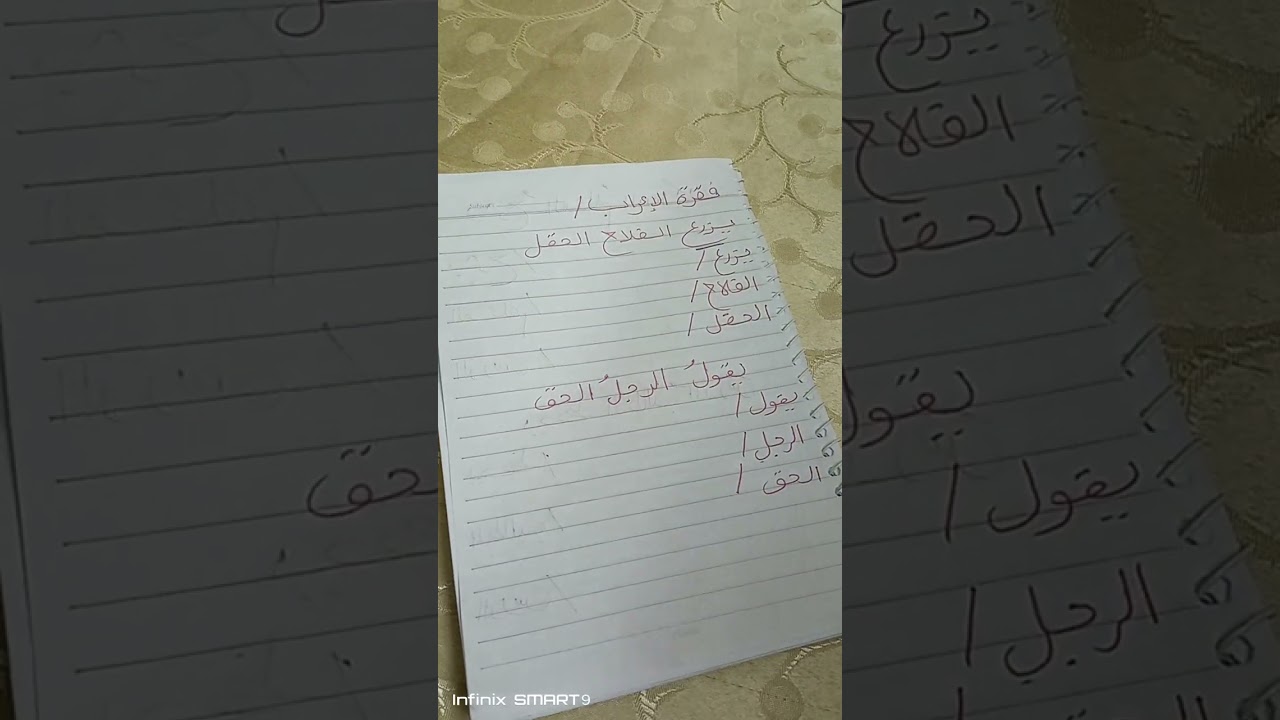 فقرة الإعراب /
يزرع الفلاح الحقل
يزرع /
الفلاح /
الحقل /
يقولُ الرجلُ الحق
يقول /
الرجل /
الحق /
Infinix SMART 9